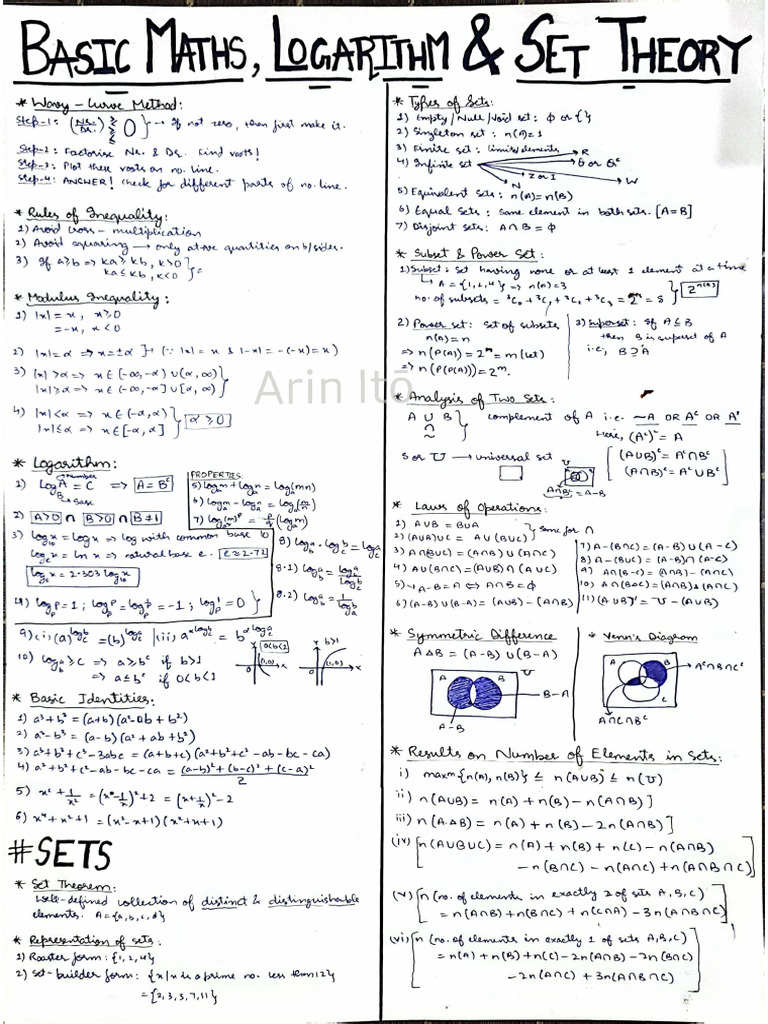 BASIC MATHS, LOGARITHM & SET THEORY
* Wavy-Curve Method:
Step-1: (Nr./Dr.) ≥ 0 } → If not zero, then first make it.
Step-2: Factorise Nr. & Dr. Find roots!
Step-3: Plot these roots on no. line.
Step-4: ANSWER! Check for different parts of no. line.
* Rules of Inequality:
1) Avoid cross-multiplication
2) Avoid squaring → only at +ve quantities on b/sides.
3) If a≥b => ka≥kb, k>0
ka≤kb, k<0
* Modulus Inequality:
1) |x| = x, x≥0
= -x, x<0
2) |x| = α => x = ±α } (∵ |x| = x & |-x| = -(-x) = x)
3) |x| > α => x ∈ (-∞, -α) ∪ (α, ∞)
|x| ≥ α => x ∈ (-∞, -α] ∪ [α, ∞)
4) |x| < α => x ∈ (-α, α)
|x| ≤ α => x ∈ [-α, α] } α ≥ 0
Arin Itō
* Logarithm:
1) log_B A = C => A = B^C
number
Base
2) A>0 ∩ B>0 ∩ B≠1
3) log₁₀x = log x => log with common base 10
logₑx = ln x => natural base e. e ≈ 2.72
logₑx = 2.303 log₁₀x
4) log_p p = 1; log_p 1/p = -1; log_p 1 = 0
PROPERTIES:
5) log_a m + log_a n = log_a (mn)
6) log_a m - log_a n = log_a (m/n)
7) log_{a^q} (m)^p = p/q (log_a m)
8) log_b a · log_c b = log_c a
8.1) log_b a = log_c a / log_c b
8.2) log_b a = 1 / log_a b
9) (i) (a)^{log_c b} = (b)^{log_c a} | (ii) a^{x log_c b} = b^{x log_c a}
10) log_b a ≥ c => a ≥ b^c if b>1
=> a ≤ b^c if 0<b<1
0<b<1
b>1
Y
(1,0)
X
0
Y
(1,0)
X
0
* Basic Identities:
1) a³+b³ = (a+b)(a²-ab+b²)
2) a³-b³ = (a-b)(a²+ab+b²)
3) a³+b³+c³-3abc = (a+b+c)(a²+b²+c²-ab-bc-ca)
4) a²+b²+c²-ab-bc-ca = ((a-b)²+(b-c)²+(c-a)²)/2
5) x² + 1/x² = (x - 1/x)² + 2 = (x + 1/x)² - 2
6) x⁴+x²+1 = (x²-x+1)(x²+x+1)
#SETS
* Set Theorem:
Well-defined collection of distinct & distinguishable
elements. A={a,b,c,d}
* Representation of sets:
1) Roaster form: {1,2,4}
2) Set-builder form: {x/x is a prime no. less than 12}
= {2,3,5,7,11}
* Types of Sets:
1) Empty/Null/Void set: φ or {}
2) Singleton set: n(A)=1
3) Finite set: limited elements
4) Infinite set → R
Q or Q^c
W
Z or I
N
5) Equivalent Sets: n(A)=n(B)
6) Equal Sets: same element in both sets. [A=B]
7) Disjoint sets: A∩B = φ
* Subset & Power Set:
1) Subset: Set having none or at least 1 element at a time
A = {1,2,4} => n(n)=3
no. of subsets = ³C₀+³C₁+³C₂+³C₃ = 2^m = 8
2^{n(A)}
2) Power set: Set of subsets
n(A) = n
=> n(P(A)) = 2^n = m (let)
=> n(P(P(A))) = 2^m.
3) Superset: If A⊆B
then B is superset of A
i.e., B⊇A
* Analysis of Two Sets:
A ∪ B
∩
~
complement of A i.e. ~A OR A^c OR A'
Here, (A^c)^c = A
S or U → universal set
U
A∩B^c = A-B
(A∪B)^c = A^c∩B^c
(A∩B)^c = A^c∪B^c
* Laws of Operations:
1) A∪B = B∪A
2) (A∪B)∪C = A∪(B∪C)
same for ∩
3) A∩(B∪C) = (A∩B)∪(A∩C)
4) A∪(B∩C) = (A∪B)∩(A∪C)
5) A-B = A ⇔ A∩B = φ
6) (A-B)∪(B-A) = (A∪B)-(A∩B)
7) A-(B∩C) = (A-B)∪(A-C)
8) A-(B∪C) = (A-B)∩(A-C)
9) A∩(B-C) = (A∩B)-(A∩C)
10) A∩(BΔC) = (A∩B)Δ(A∩C)
11) (A∪B)' = U-(A∪B)
* Symmetric Difference
AΔB = (A-B)∪(B-A)
A
B
U
B-A
A-B
* Venn's Diagram
A
B
C
A^c∩B∩C^c
A∩C∩B^c
* Results on Number of Elements in Sets:
i) maxm{n(A), n(B)} ≤ n(A∪B) ≤ n(U)
ii) n(A∪B) = n(A)+n(B)-n(A∩B)]
iii) n(AΔB) = n(A)+n(B)-2n(A∩B)]
(iv) n(A∪B∪C) = n(A)+n(B)+n(C)-n(A∩B)
-n(B∩C)-n(A∩C)+n(A∩B∩C)
(v) n(no. of elements in exactly 2 of sets A,B,C)
= n(A∩B)+n(B∩C)+n(C∩A)-3n(A∩B∩C)
(vi) n(no. of elements in exactly 1 of sets A,B,C)
= n(A)+n(B)+n(C)-2n(A∩B)-2n(B∩C)
-2n(A∩C)+3n(A∩B∩C)